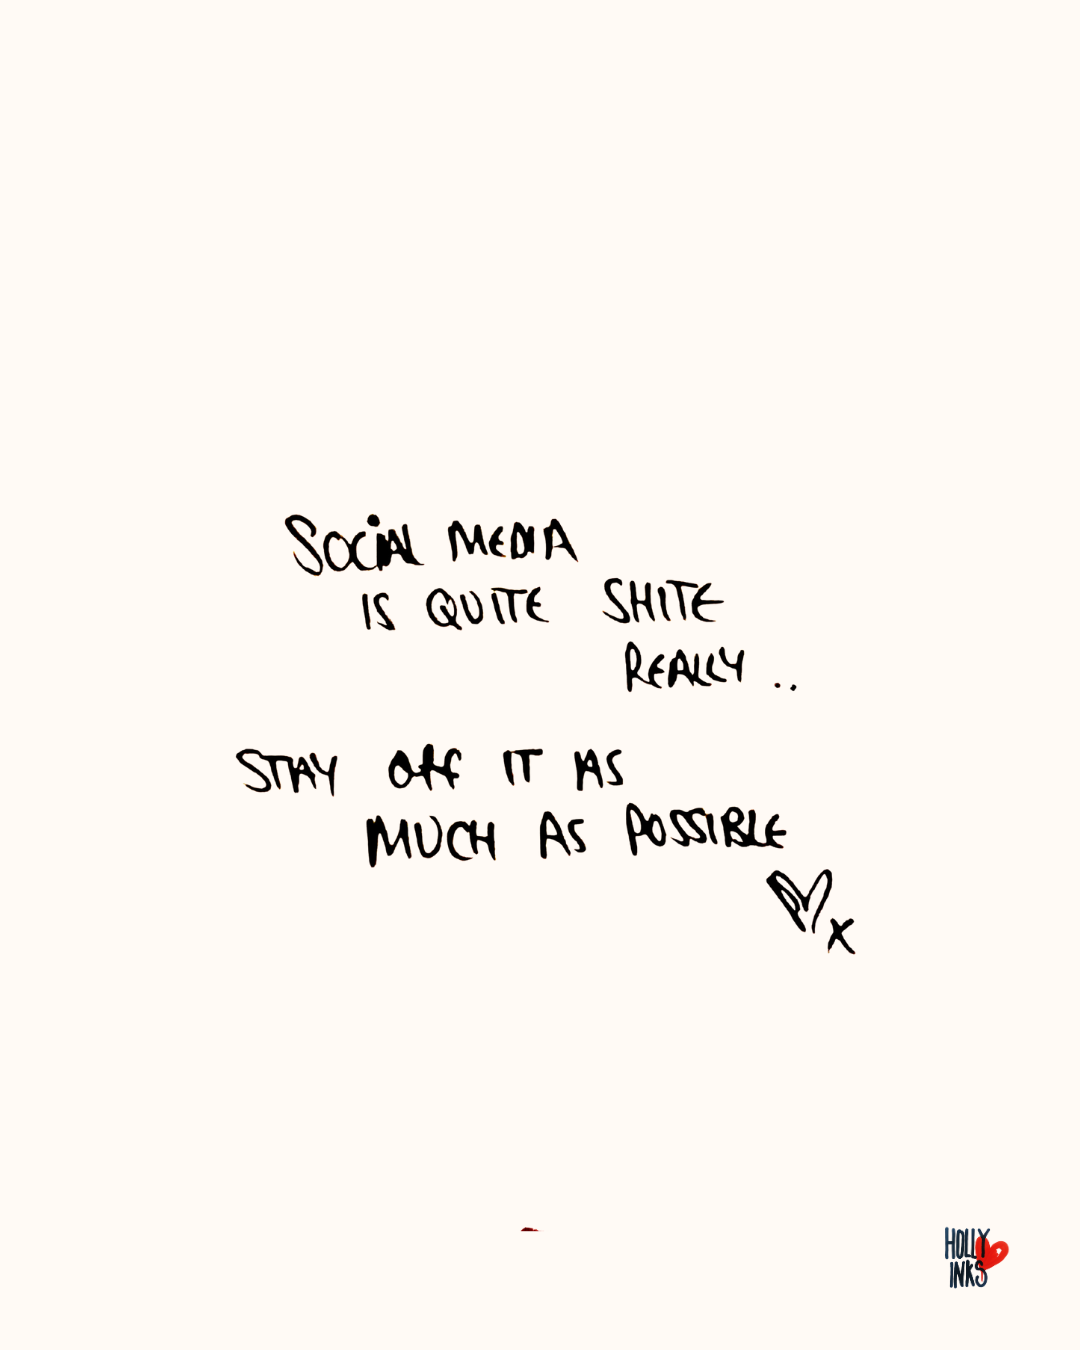 SOCIAL MEDIA
IS QUITE SHITE
REALLY ..
STAY Off IT AS
MUCH AS POSSIBLE
X
HOLLY
INKS